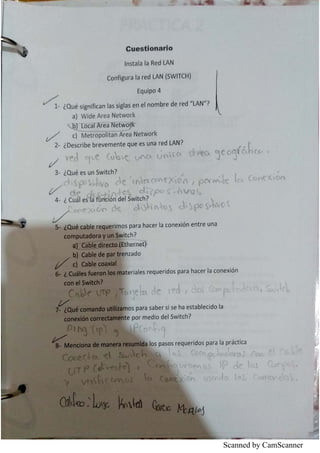 PRACTICA 2
Cuestionario
Instala la Red LAN
Configura la red LAN (SWITCH)
Equipo 4
1- ¿Qué significan las siglas en el nombre de red "LAN"?
a) Wide Area Network
b) Local Area Network
c) Metropolitan Area Network
2- ¿Describe brevemente que es una red LAN?
red que cubre una unica area geografica.
3- ¿Qué es un Switch?
dispositivo de interconexión, permite la conexión
de distintos dispositivos
4- ¿ Cuál es la función del Switch?
Conexión de distintos dispositivos
5- ¿Qué cable requerimos para hacer la conexión entre una
computadora y un Switch?
a) Cable directo (Ethernet)
b) Cable de par trenzado
c) Cable coaxial
6- ¿ Cuáles fueron los materiales requeridos para hacer la conexión
con el Switch?
Cable UTP, Tarjeta de red, dos computadoras, Switch
7- ¿Qué comando utilizamos para saber si se ha establecido la
conexión correctamente por medio del Switch?
Ping (ip) y IPConfig
8- Menciona de manera resumida los pasos requeridos para la práctica
Conecta el Switch a las computadoras con el Cable
UTP (directo), Configuramos IP de los Equipos,
y verificamos la conexión usando los Comandos.
Kristell Garcia
Scanned by CamScanner